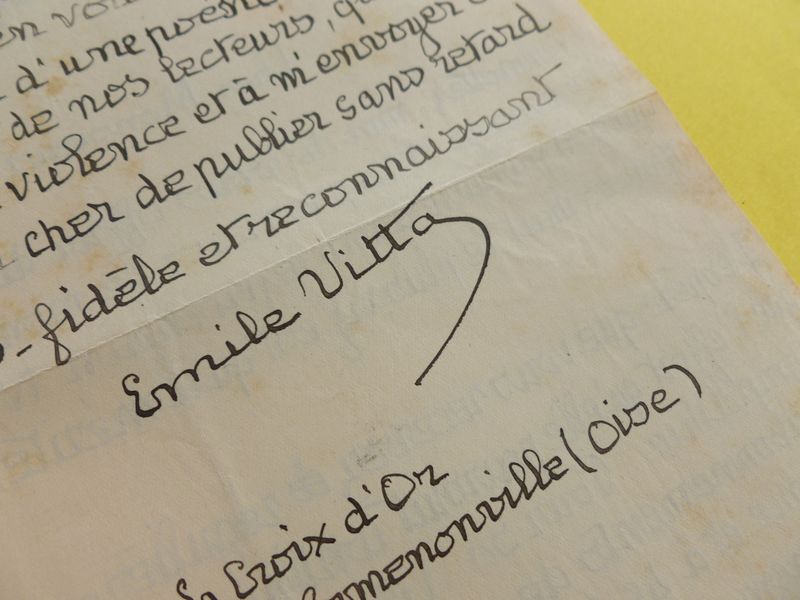 en vou
d'une poésie
de nos lecteurs, qu
violence et à m'envoyer
cher de publier sans retard
fidèle et reconnaissant
Emile Vitta
Croix d'Or
menonville (Oise)